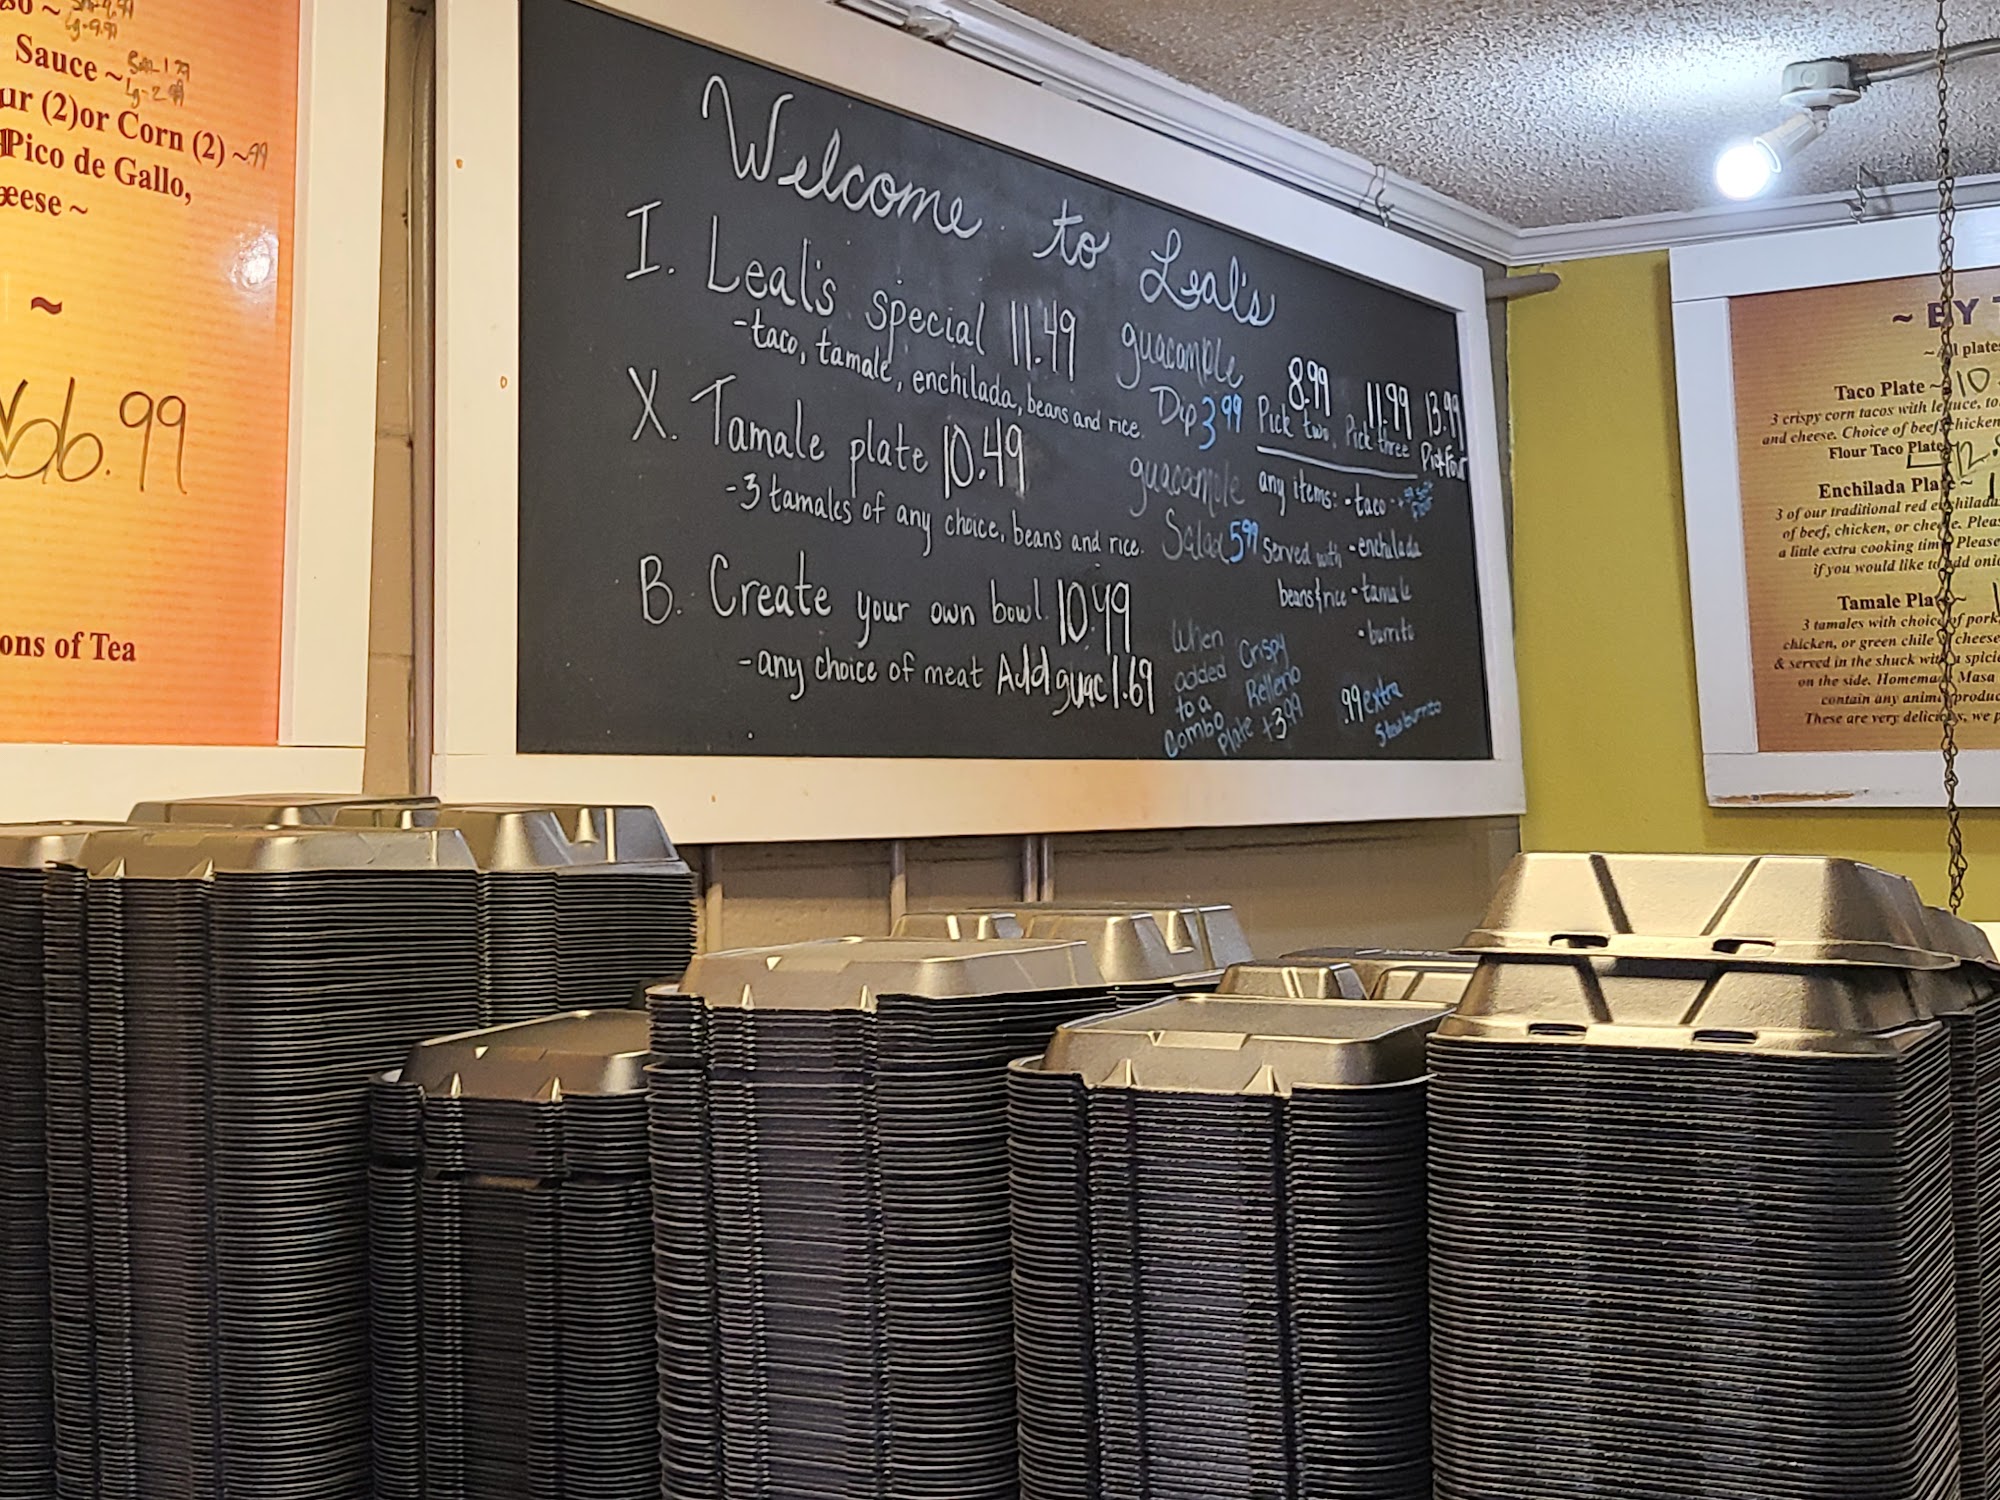 Sauce ~
Lg-2.99
(2)or Corn (2) ~.99
Pico de Gallo,
~
~
6.99
of Tea
Welcome to Leal's
I. Leal's special 11.49
-taco, tamale, enchilada, beans and rice.
X. Tamale plate 10.49
-3 tamales of any choice, beans and rice.
B. Create your own bowl 10.49
-any choice of meat Add guac 1.69
guacamole
Dip 3.99
guacamole
Salad 5.99
8.99 11.99 13.99
Pick two, Pick three Pick Four
any items: • taco
Served with • enchilada
beans & rice • tamale
• burrito
When
added
to a
Combo
Plate +3.99
Crispy
Relleno
.99 extra
~ BY
plates
Taco Plate ~ 10.
3 crispy corn tacos with lettuce,
and cheese. Choice of beef, chicken
Flour Taco Plate 12.
Enchilada Plate ~ 1
3 of our traditional red enchiladas
of beef, chicken, or cheese.
a little extra cooking time. Please
if you would like to add
Tamale Plate ~ 1
3 tamales with choice of pork,
chicken, or green chile & cheese
& served in the shuck with a
on the side. Homemade Masa
contain any animal
These are very delicious, we